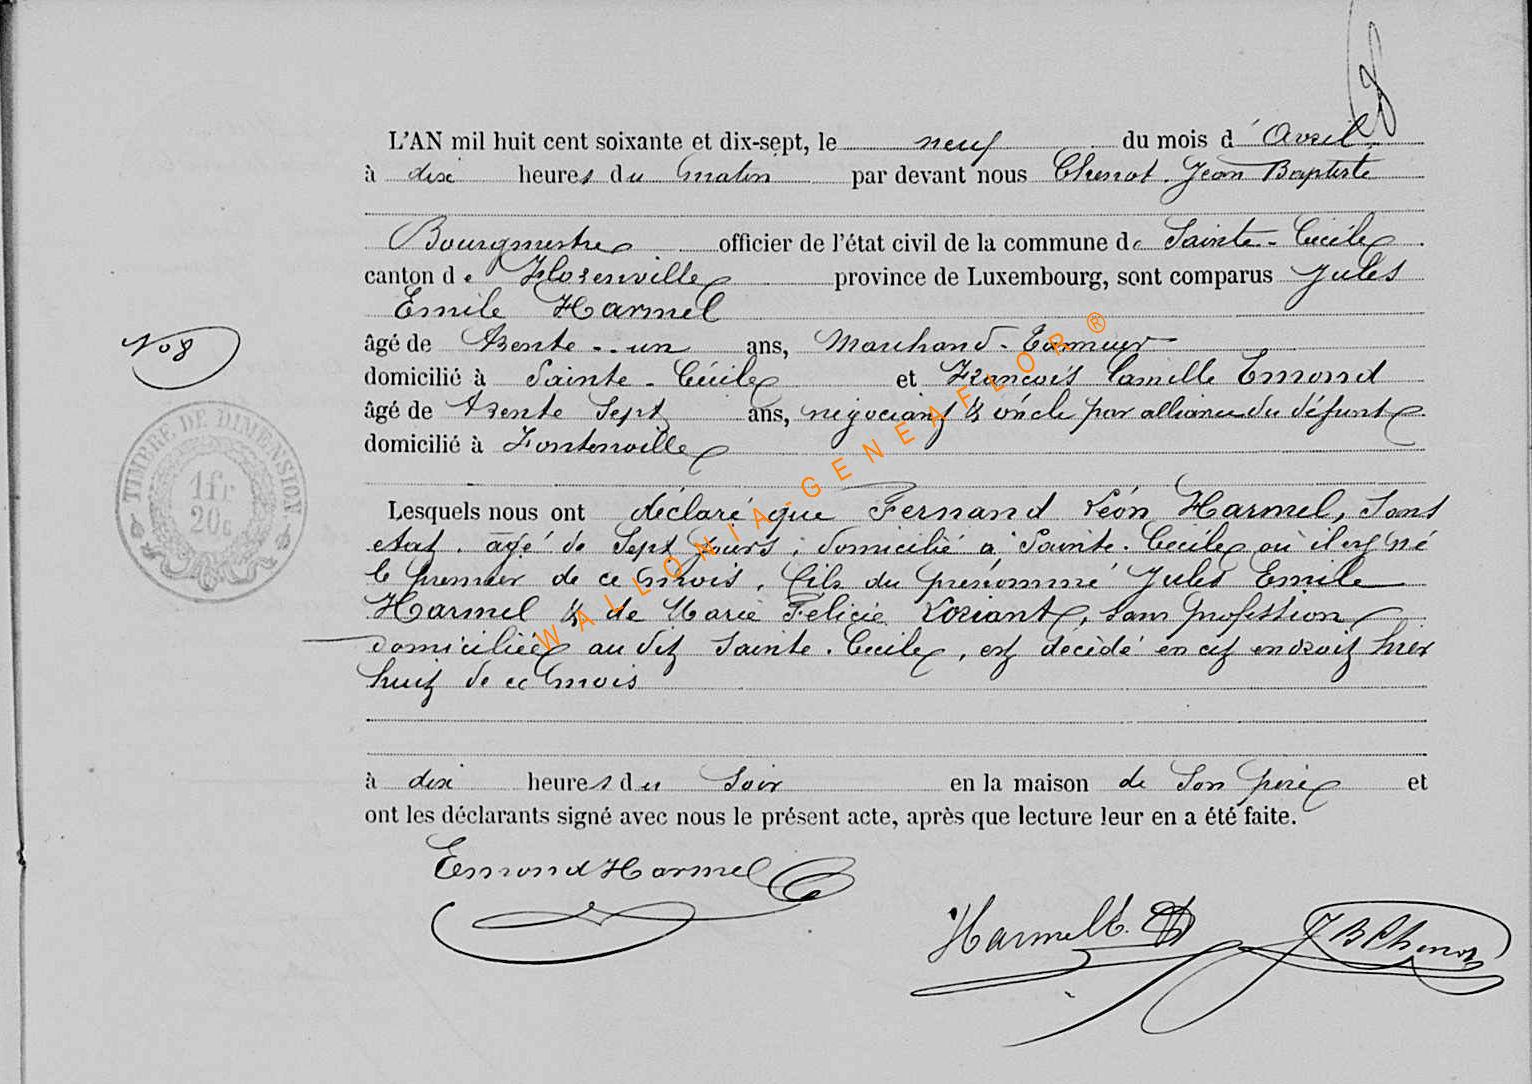 8
L'AN mil huit cent soixante et dix-sept, le neuf du mois d'Avril
à dix heures du matin par devant nous Chenot Jean Baptiste
Bourgmestre officier de l'état civil de la commune de Sainte-Cécile
canton de Florenville province de Luxembourg, sont comparus Jules
Emile Harmel
No 8
âgé de trente-un ans, Marchand-Tanneur
domicilié à Sainte-Cécile et François Camille Emond
âgé de trente sept ans, négociant & oncle par alliance du défunt
domicilié à Fontenoille
TIMBRE DE DIMENSION
1fr
20c
Lesquels nous ont déclaré que Fernand Léon Harmel, sans
etat, âgé de sept jours, domicilié à Sainte-Cécile où il est né
le premier de ce mois, fils du prénommé Jules Emile
Harmel & de Marie Felicie Loriant, sans profession
domiciliée au dit Sainte-Cécile, est décédé en cet endroit hier
huit de ce mois
à dix heures du soir en la maison de son père et
ont les déclarants signé avec nous le présent acte, après que lecture leur en a été faite.
Emond Harmel
Harmel E. JB Chenot
WALLONIA-GENEAFLOR ®